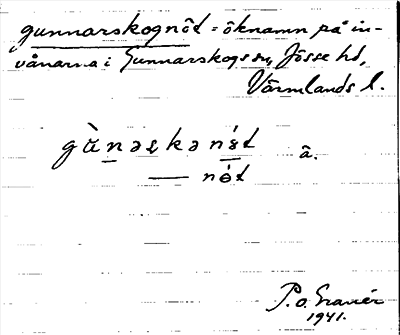 gunnarskognöt = öknamn på in-
vånarna i Gunnarskogs sn, Jösse hd,
Värmlands l.
nø̀t
P.O. Granér
1941.